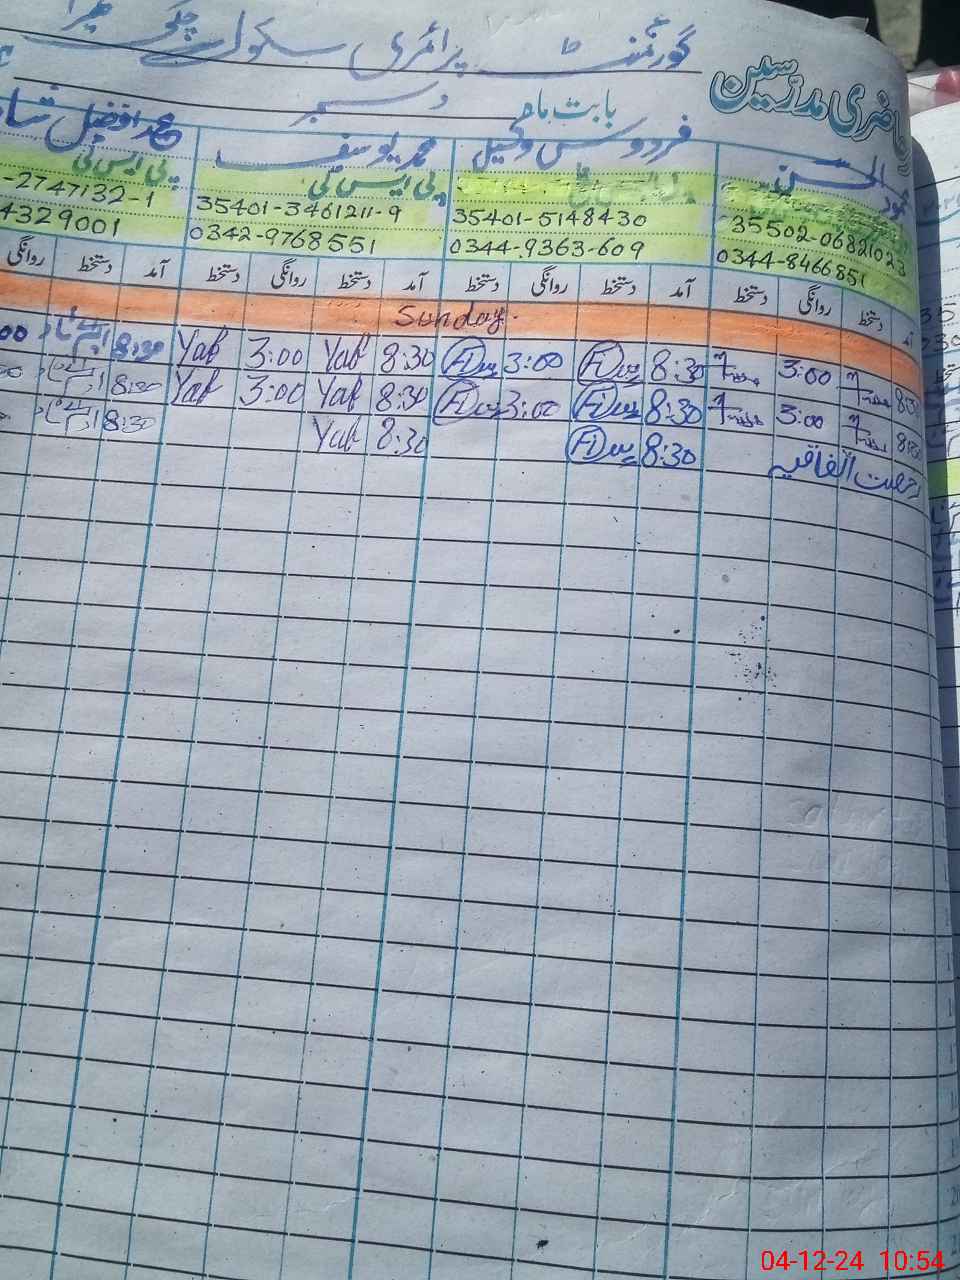 گورنمنٹ پرائمری سکول چک
حاضری مدرسین
بابت ماہ دسمبر
الحسن فردوس وکیل محمد یوسف محمد افضل
پی ایس ٹی پی ایس ٹی
35502-06821023 35401-5148430 35401-3461211-9 -2747132-1
0344-8466851 0344-9363-609 0342-9768551 4329001
آمد دستخط روانگی دستخط آمد دستخط روانگی دستخط آمد دستخط روانگی دستخط آمد دستخط روانگی
Sunday.
8:30 3:00 8:30 3:00 8:30 Yab 3:00 Yab 8:30 00
8:30 3:00 8:30 3:00 8:30 Yab 3:00 Yab 8:30
رخصت اتفاقیہ 8:30 8:30 Yab 8:30
04-12-24 10:54